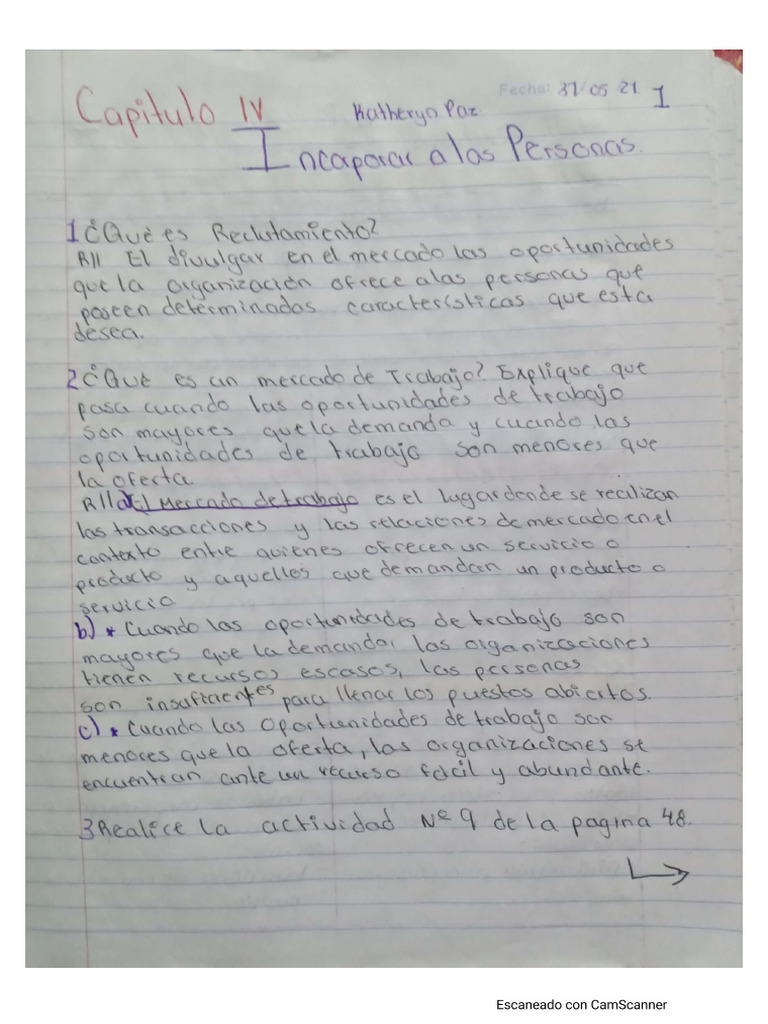 Fecha: 31/05/21 1
Capitulo IV Katheryn Paz.
Incaporar a las Personas.
1 ¿Qué es Reclutamiento?
R// El divulgar en el mercado las oportunidades
que la organización ofrece a las personas que
poseen determinadas características que esta
desea.
2 ¿Qué es un mercado de Trabajo? Explique que
pasa cuando las oportunidades de trabajo
son mayores que la demanda y cuando las
oportunidades de trabajo son menores que
la oferta.
R// a) El Mercado de trabajo es el lugar donde se realizan
las transacciones y las relaciones de mercado en el
contexto entre quienes ofrecen un servicio o
producto y aquelles que demandan un producto o
servicio
b) * Cuando las oportunidades de trabajo son
mayores que la demanda, las organizaciones
tienen recursos escasos, las personas
son insuficientes para llenar los puestos abiertos.
c) * Cuando las oportunidades de trabajo son
menores que la oferta, las organizaciones se
encuentran ante un recurso fácil y abundante.
3 Realice la actividad Nº 9 de la pagina 48.
Escaneado con CamScanner